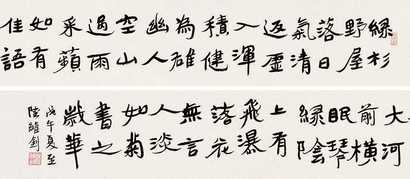 綠杉
野屋
落日
氣清
返虛
入渾
積健
為雄
幽人
空山
過雨
采蘋
如有
佳語
大河
前橫
眠琴
綠陰
上有
飛瀑
落花
無言
人淡
如菊
書之
歲華
戊午夏至
陸維釗